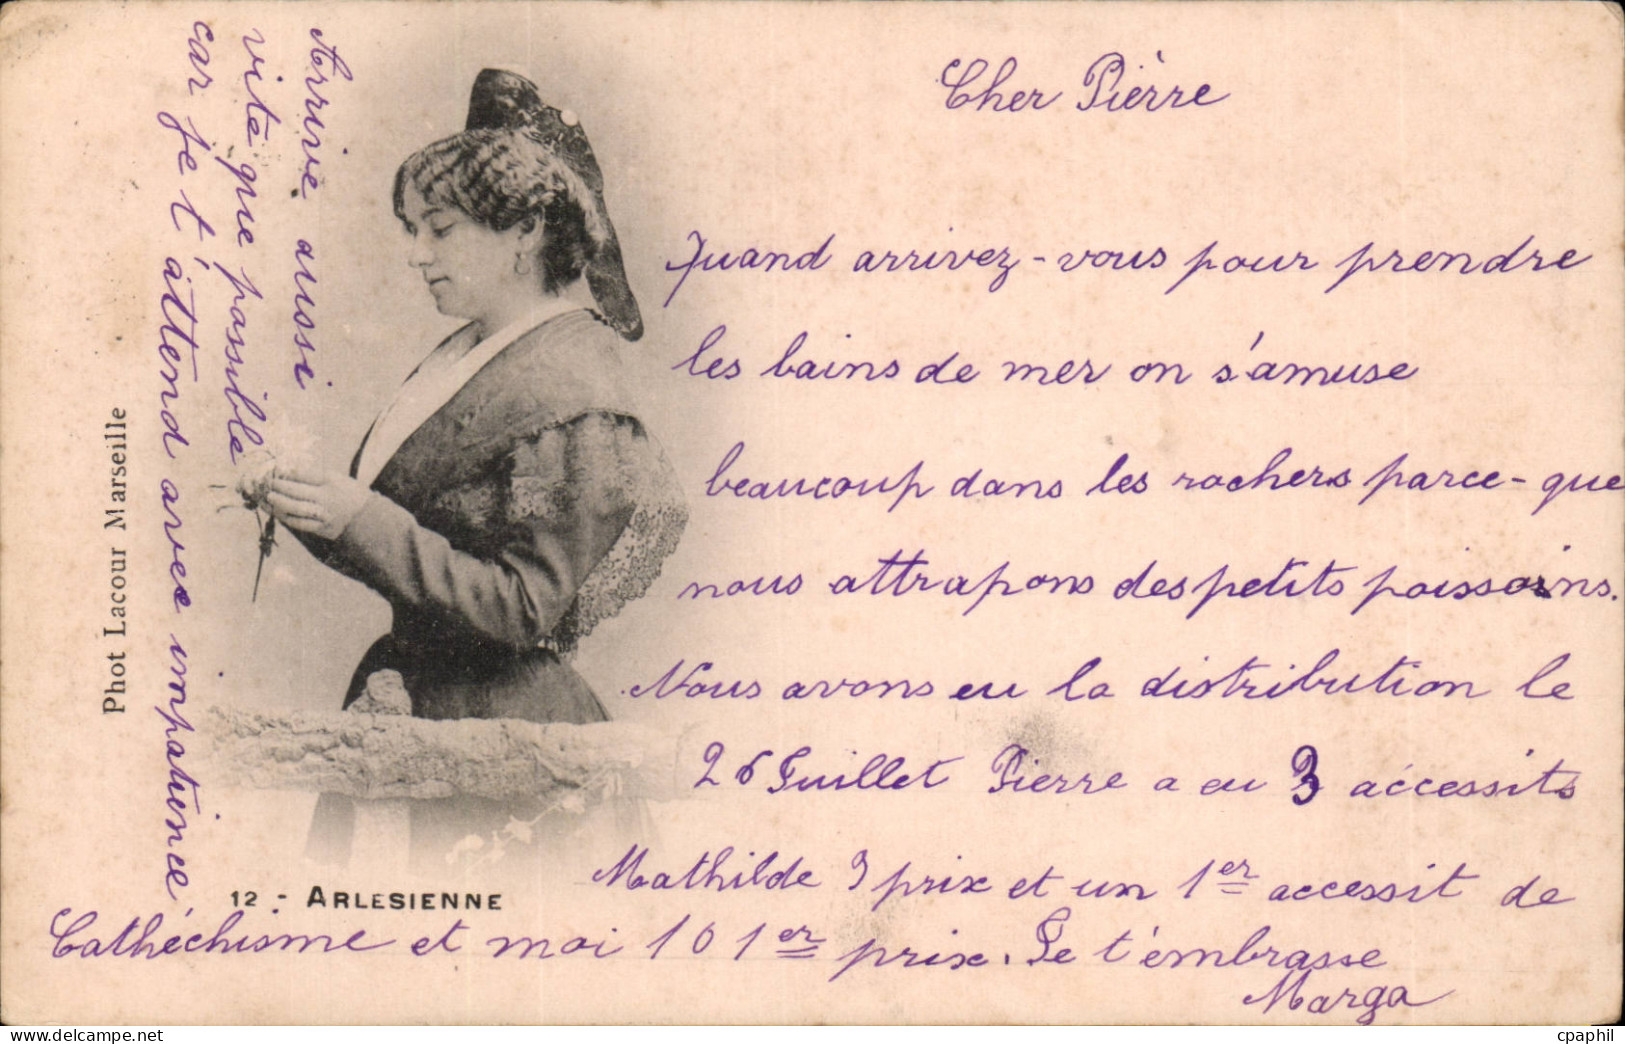 Cher Pièrre
Quand arrivez-vous pour prendre
les bains de mer on s'amuse
beaucoup dans les rochers parce-que
nous attrapons des petits poissoins.
Nous avons eu la distribution le
26 Juillet Pierre a eu 3 accessits
Mathilde 9 prix et un 1er accessit de
Cathéchisme et moi 10 1er prix. Je t'embrasse
Marga
Arrive aussi
vite que possible
car je t'attend avec impatience
Phot Lacour Marseille
12 - ARLESIENNE
cpaphil